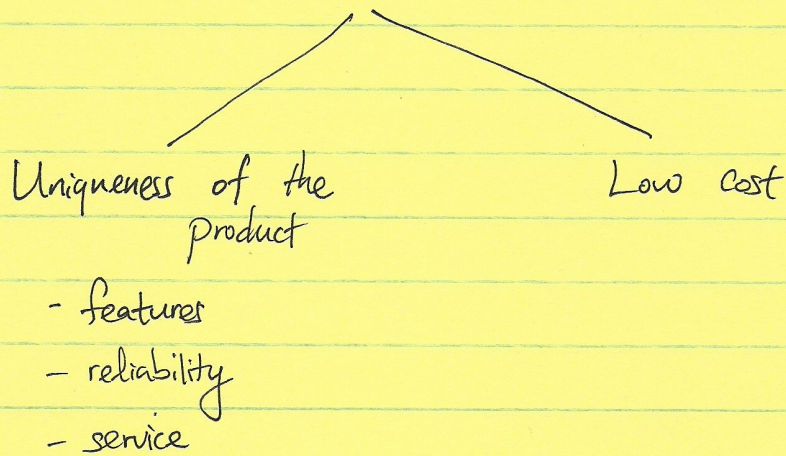 Uniqueness of the
product
Low cost
- features
- reliability
- service